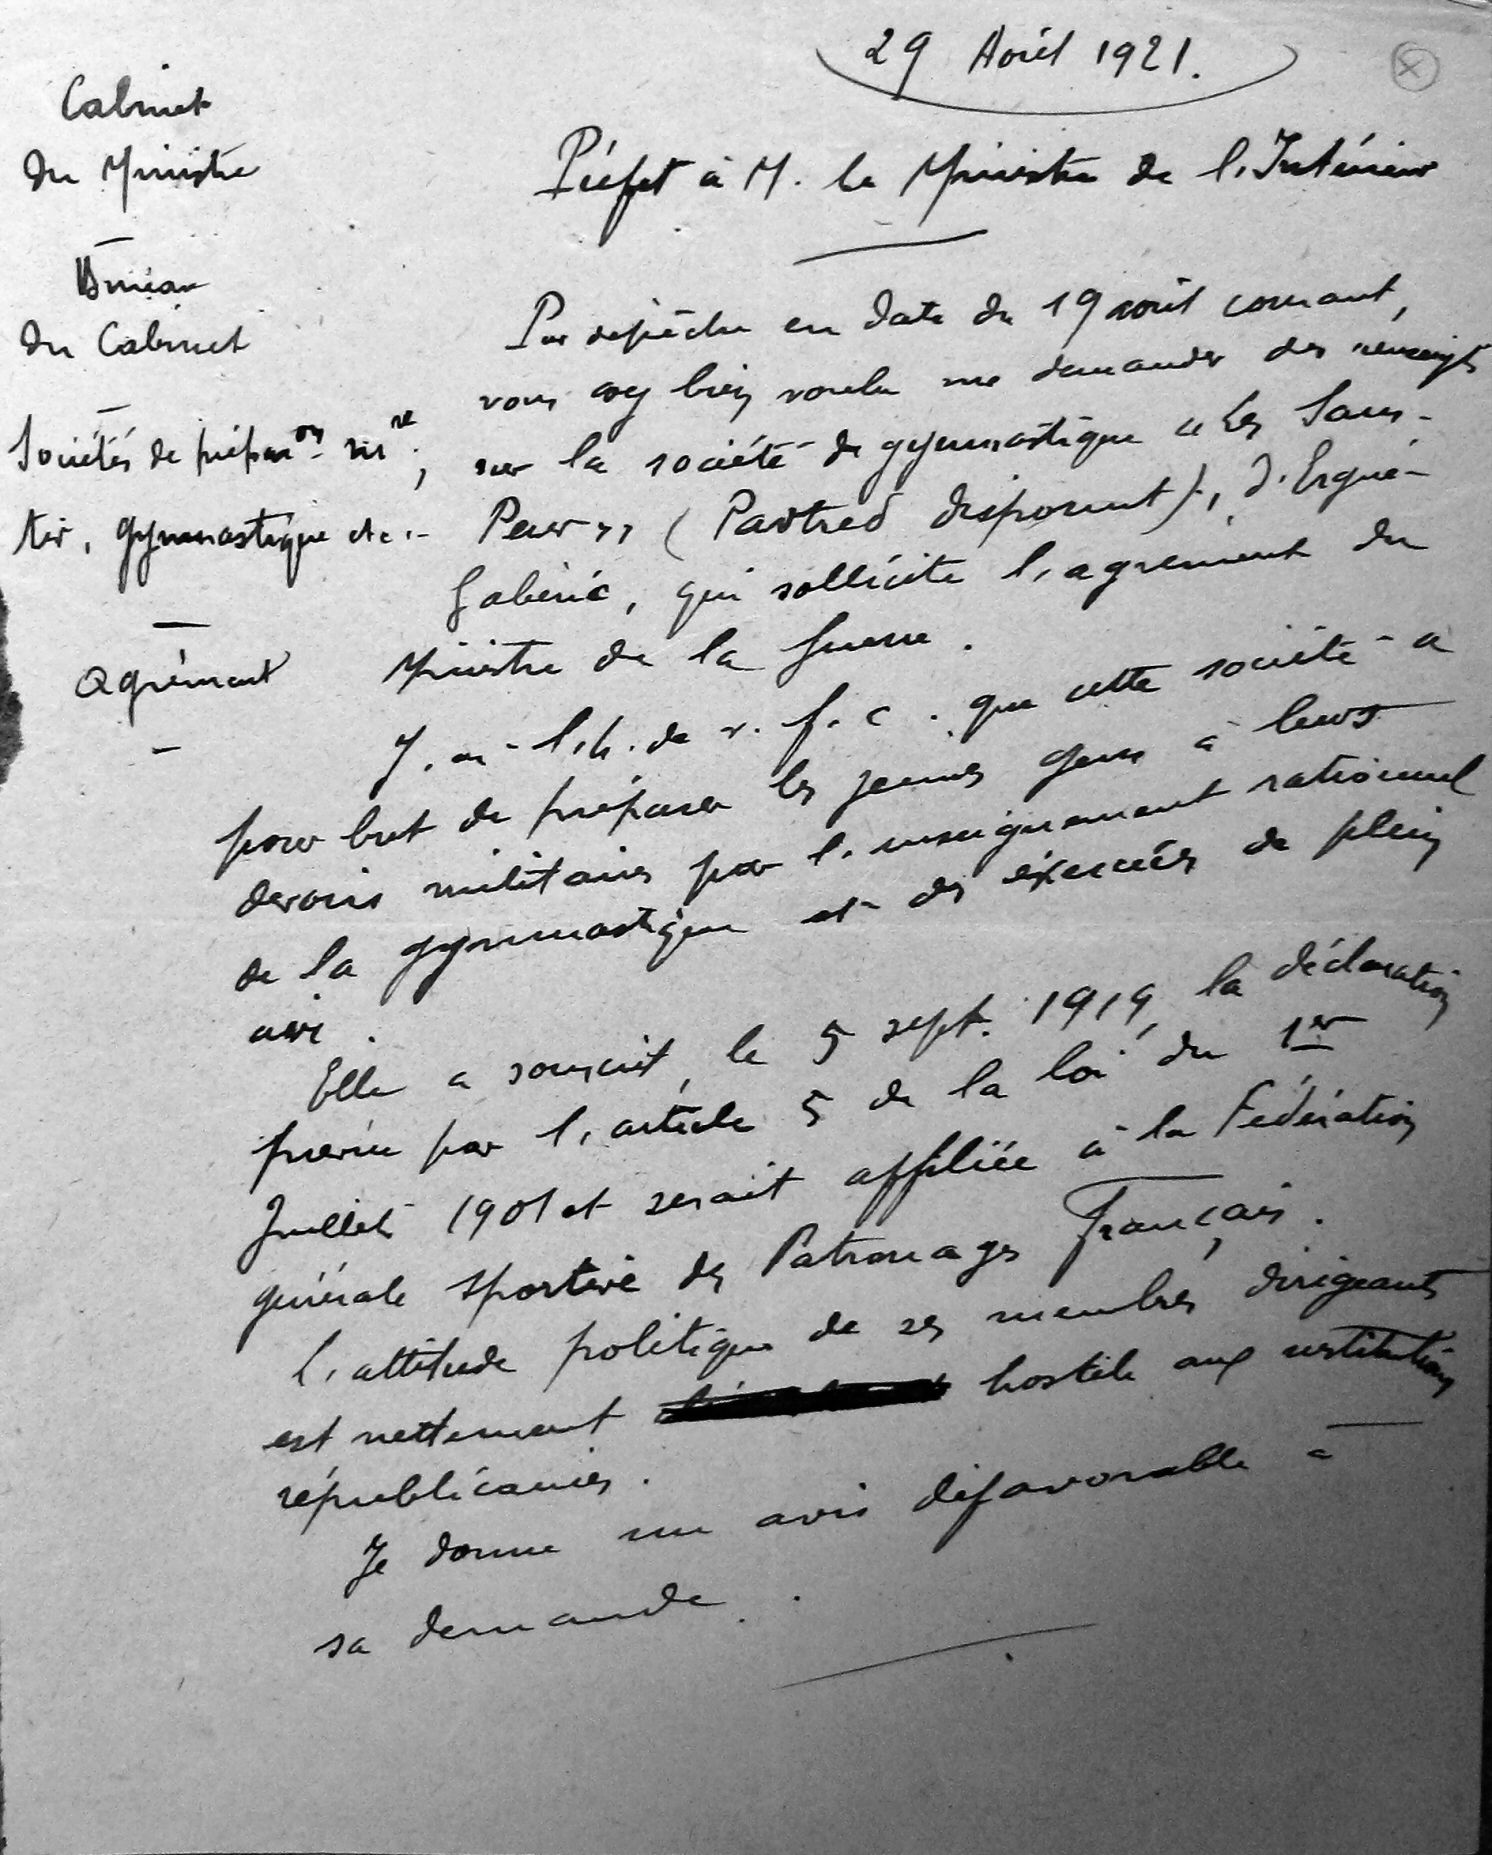 29 Août 1921.
Cabinet
du Ministre
Bureau
du Cabinet
Sociétés de prépar^on m^re,
tir, gymnastique etc.-
Agrément
Préfet à M. le Ministre de l'Intérieur
Par dépêche en date du 19 août courant,
vous avez bien voulu me demander des renseigts
sur la société de gymnastique "Les Sans-
Peur" (Paotred dispount), d'Ergué-
Gabéric, qui sollicite l'agrément du
Ministre de la Guerre.
J'ai l'h. de v. f. c. que cette société a
pour but de préparer les jeunes gens à leurs
devoirs militaires par l'enseignement rationnel
de la gymnastique et des exercices de plein
air.
Elle a souscrit, le 5 sept. 1919, la déclaration
prévue par l'article 5 de la loi du 1er
Juillet 1901 et serait affiliée à la Fédération
générale sportive des Patronages Français.
L'attitude politique de ses membres dirigeants
est nettement hostile aux institutions
républicaines.
Je donne un avis défavorable à
sa demande.